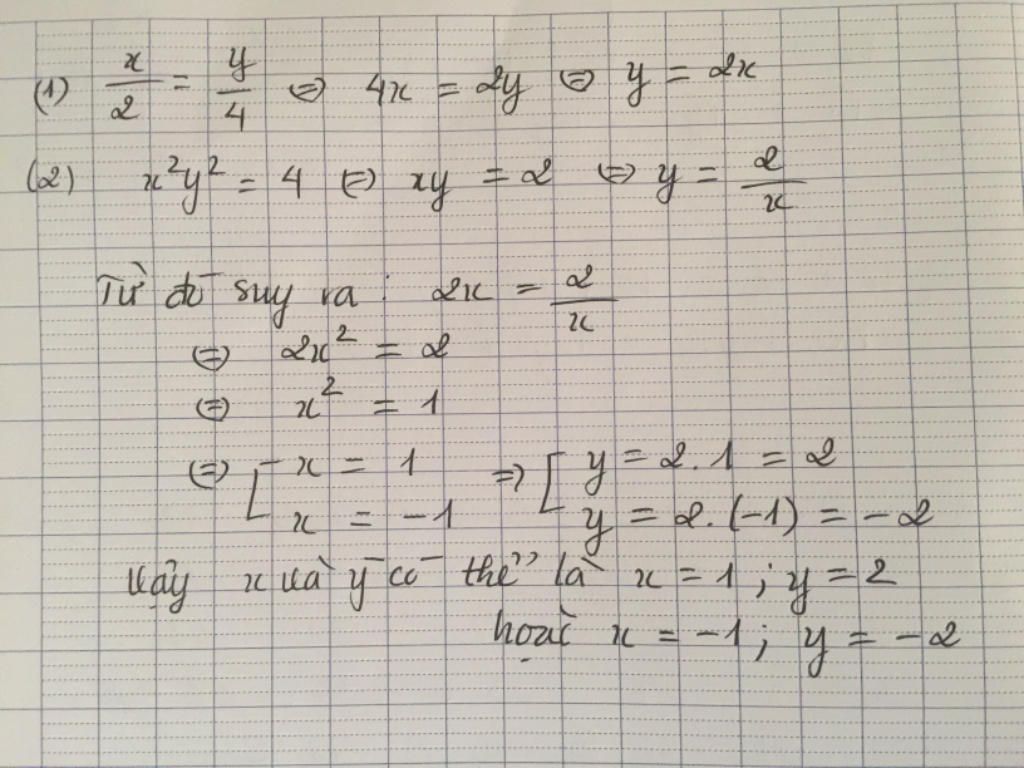 (1) x/2 = y/4 ⇔ 4x = 2y ⇔ y = 2x
(2) x²y² = 4 ⇔ xy = 2 ⇔ y = 2/x
Từ đó suy ra : 2x = 2/x
⇔ 2x² = 2
⇔ x² = 1
⇔ [ x = 1 ⇒ [ y = 2.1 = 2
x = -1 y = 2.(-1) = -2
Vậy x và y có thể là x = 1 ; y = 2
hoặc x = -1 ; y = -2